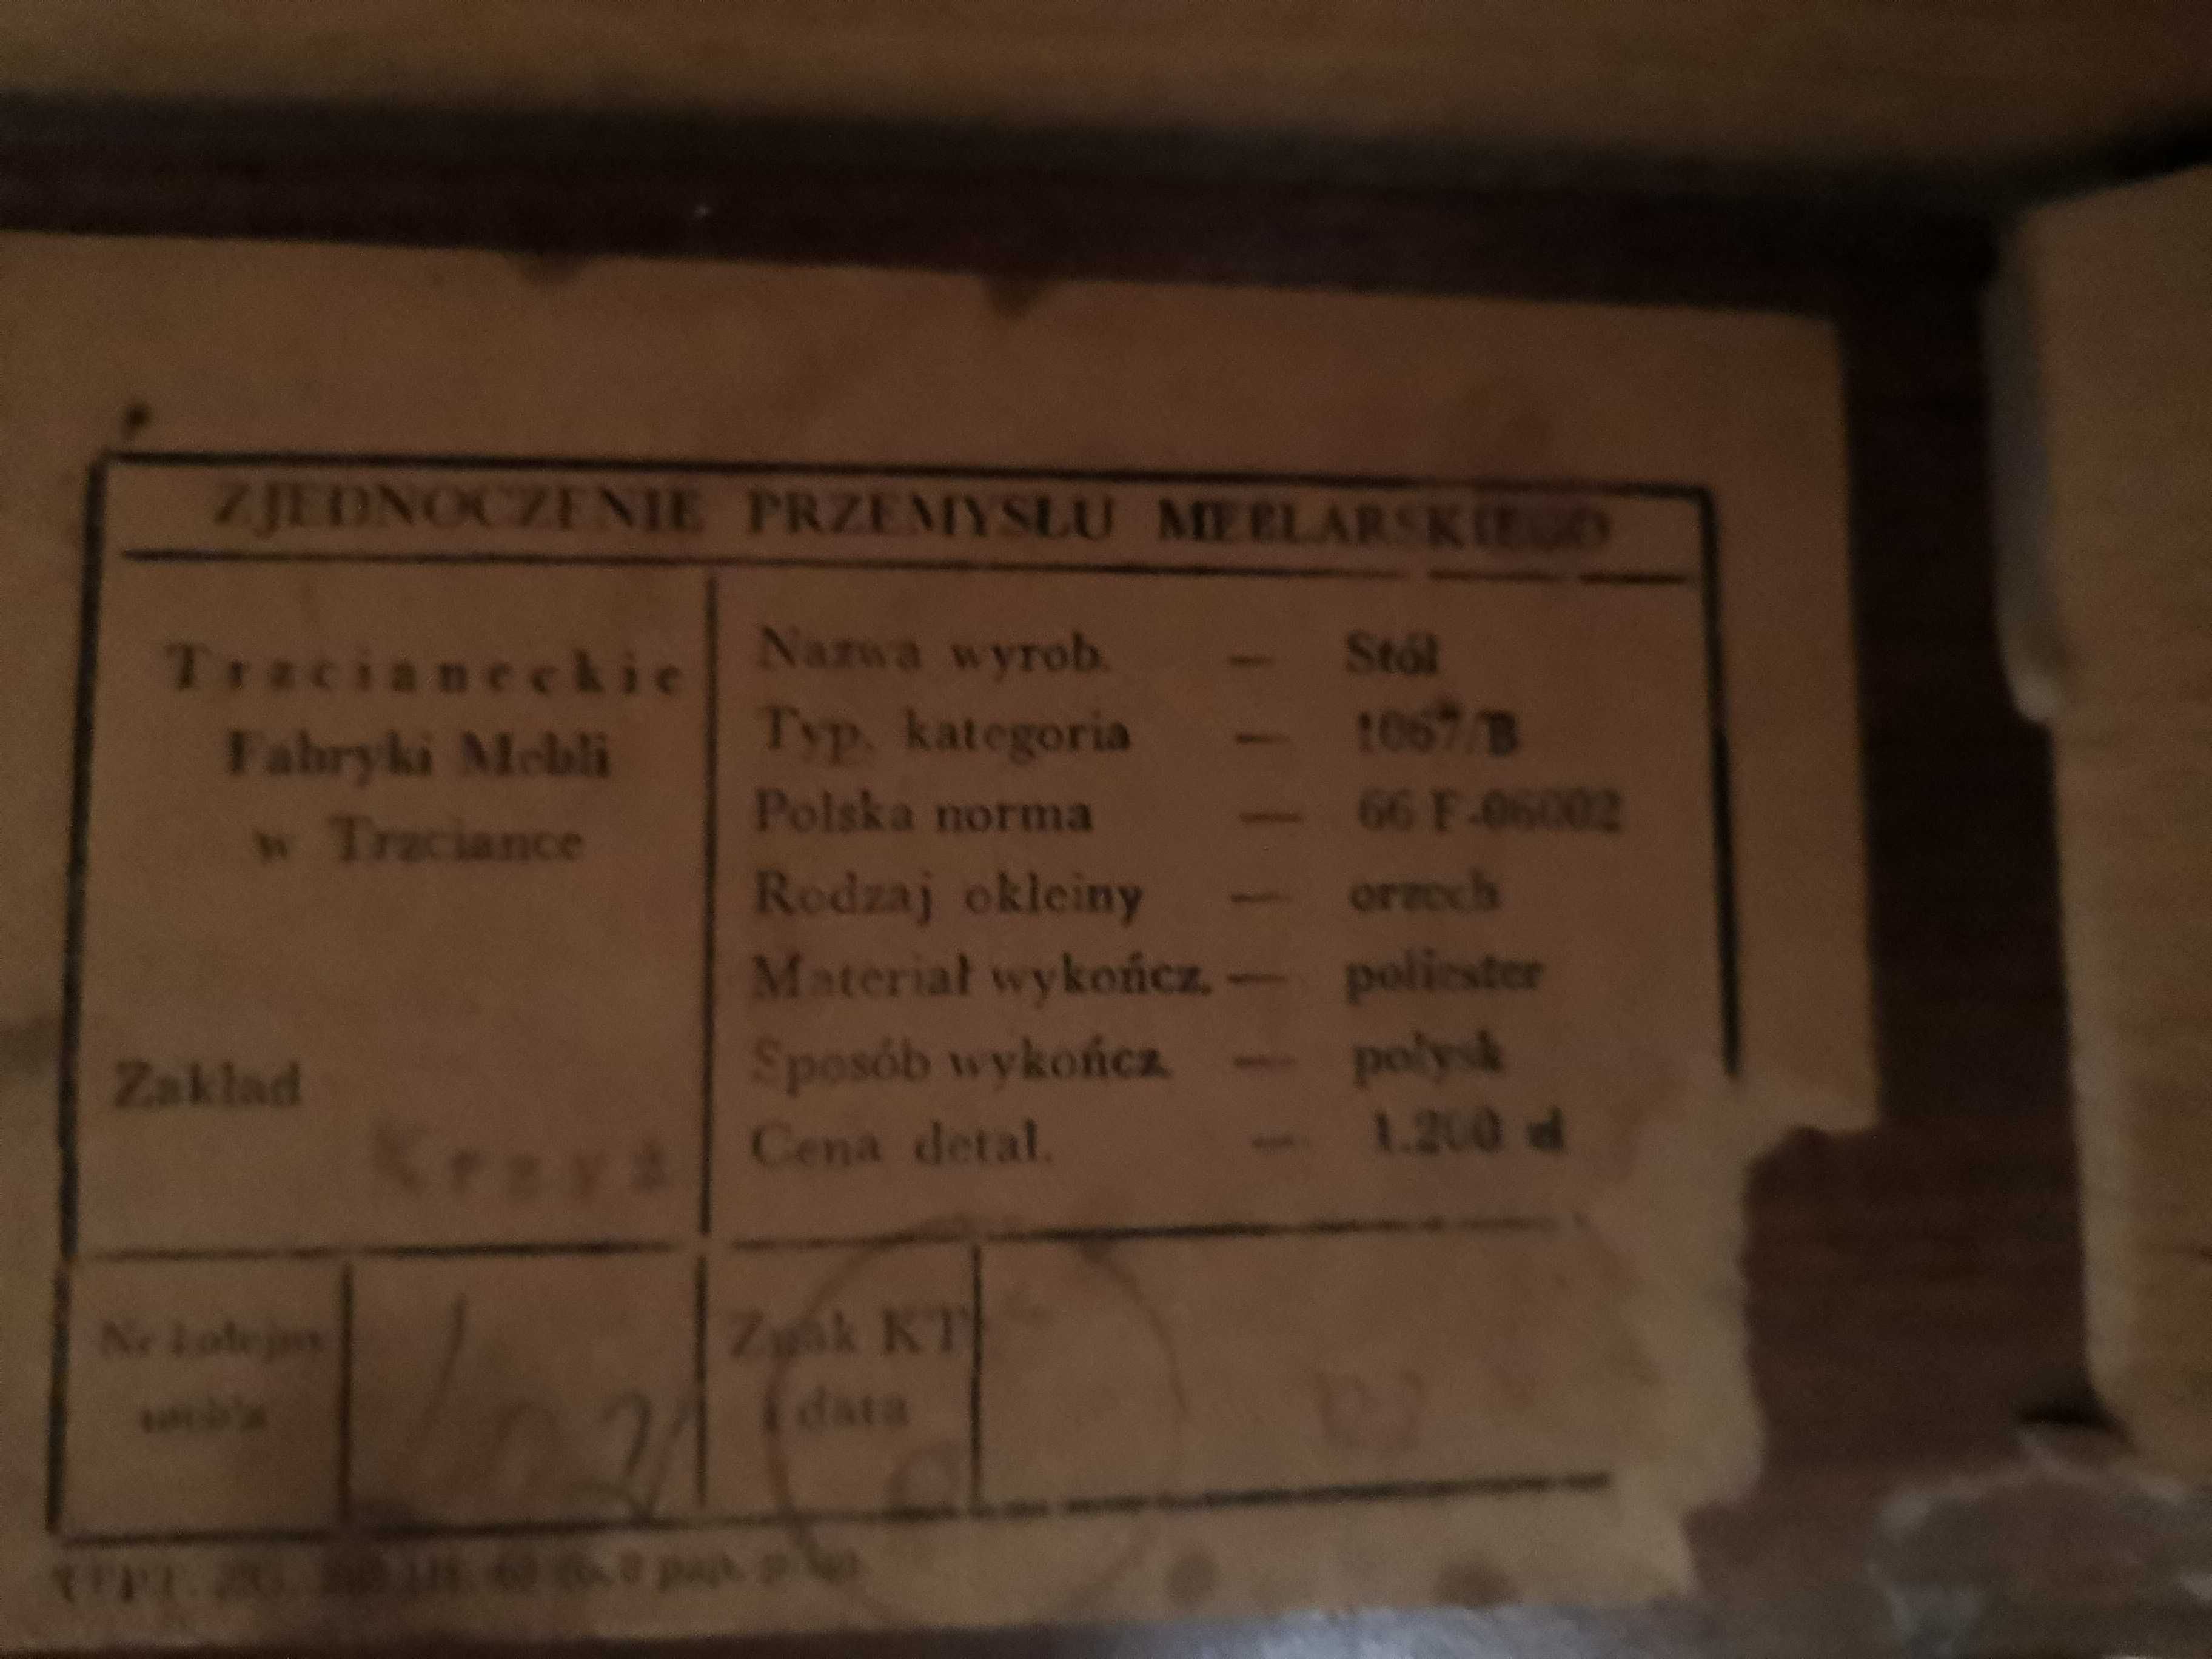 ZJEDNOCZENIE PRZEMYSŁU MEBLARSKIEGO
Trzcianeckie
Fabryki Mebli
w Trzciance
Zakład
Krzyż
Nazwa wyrob. — Stół
Typ. kategoria — 1067/B
Polska norma — 66 F-06002
Rodzaj okleiny — orzech
Materiał wykończ. — poliester
Sposób wykończ. — połysk
Cena detal. — 1.200 zł
Nr kolejny
mebla
Znak KT
i data